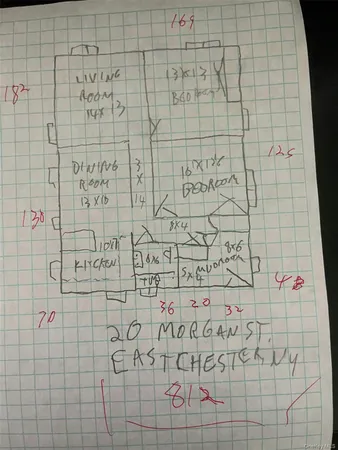 169
182
LIVING
ROOM
14x13
13x13
BEDROOM
125
DINING
ROOM
13x10
3
X
14
BEDROOM
8x4
130
KITCHEN
8x6
MUDROOM
5x4
70
36
20
32
20 MORGAN ST.
EASTCHESTER, NY
812